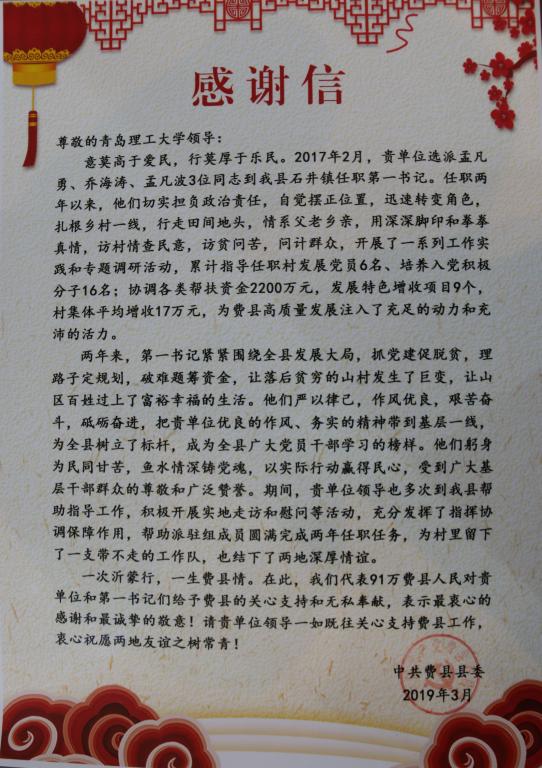 感谢信
尊敬的青岛理工大学领导：
意莫高于爱民，行莫厚于乐民。2017年2月，贵单位选派孟凡
勇、乔海涛、孟凡波3位同志到我县石井镇任职第一书记。任职两
年以来，他们切实担负政治责任，自觉摆正位置，迅速转变角色，
扎根乡村一线，行走田间地头，情系父老乡亲，用深深脚印和拳拳
真情，访村情查民意，访贫问苦，问计群众，开展了一系列工作实
践和专题调研活动，累计指导任职村发展党员6名、培养入党积极
分子16名；协调各类帮扶资金2200万元，发展特色增收项目9个，
村集体平均增收17万元，为费县高质量发展注入了充足的动力和充
沛的活力。
两年来，第一书记紧紧围绕全县发展大局，抓党建促脱贫，理
路子定规划，破难题筹资金，让落后贫穷的山村发生了巨变，让山
区百姓过上了富裕幸福的生活。他们严以律己，作风优良，艰苦奋
斗，砥砺奋进，把贵单位优良的作风、务实的精神带到基层一线，
为全县树立了标杆，成为全县广大党员干部学习的榜样。他们躬身
为民同甘苦，鱼水情深铸党魂，以实际行动赢得民心，受到广大基
层干部群众的尊敬和广泛赞誉。期间，贵单位领导也多次到我县帮
助指导工作，积极开展实地走访和慰问等活动，充分发挥了指挥协
调保障作用，帮助派驻组成员圆满完成两年任职任务，为村里留下
了一支带不走的工作队，也结下了两地深厚情谊。
一次沂蒙行，一生费县情。在此，我们代表91万费县人民对贵
单位和第一书记们给予费县的关心支持和无私奉献，表示最衷心的
感谢和最诚挚的敬意！请贵单位领导一如既往关心支持费县工作，
衷心祝愿两地友谊之树常青！
中共费县县委
2019年3月